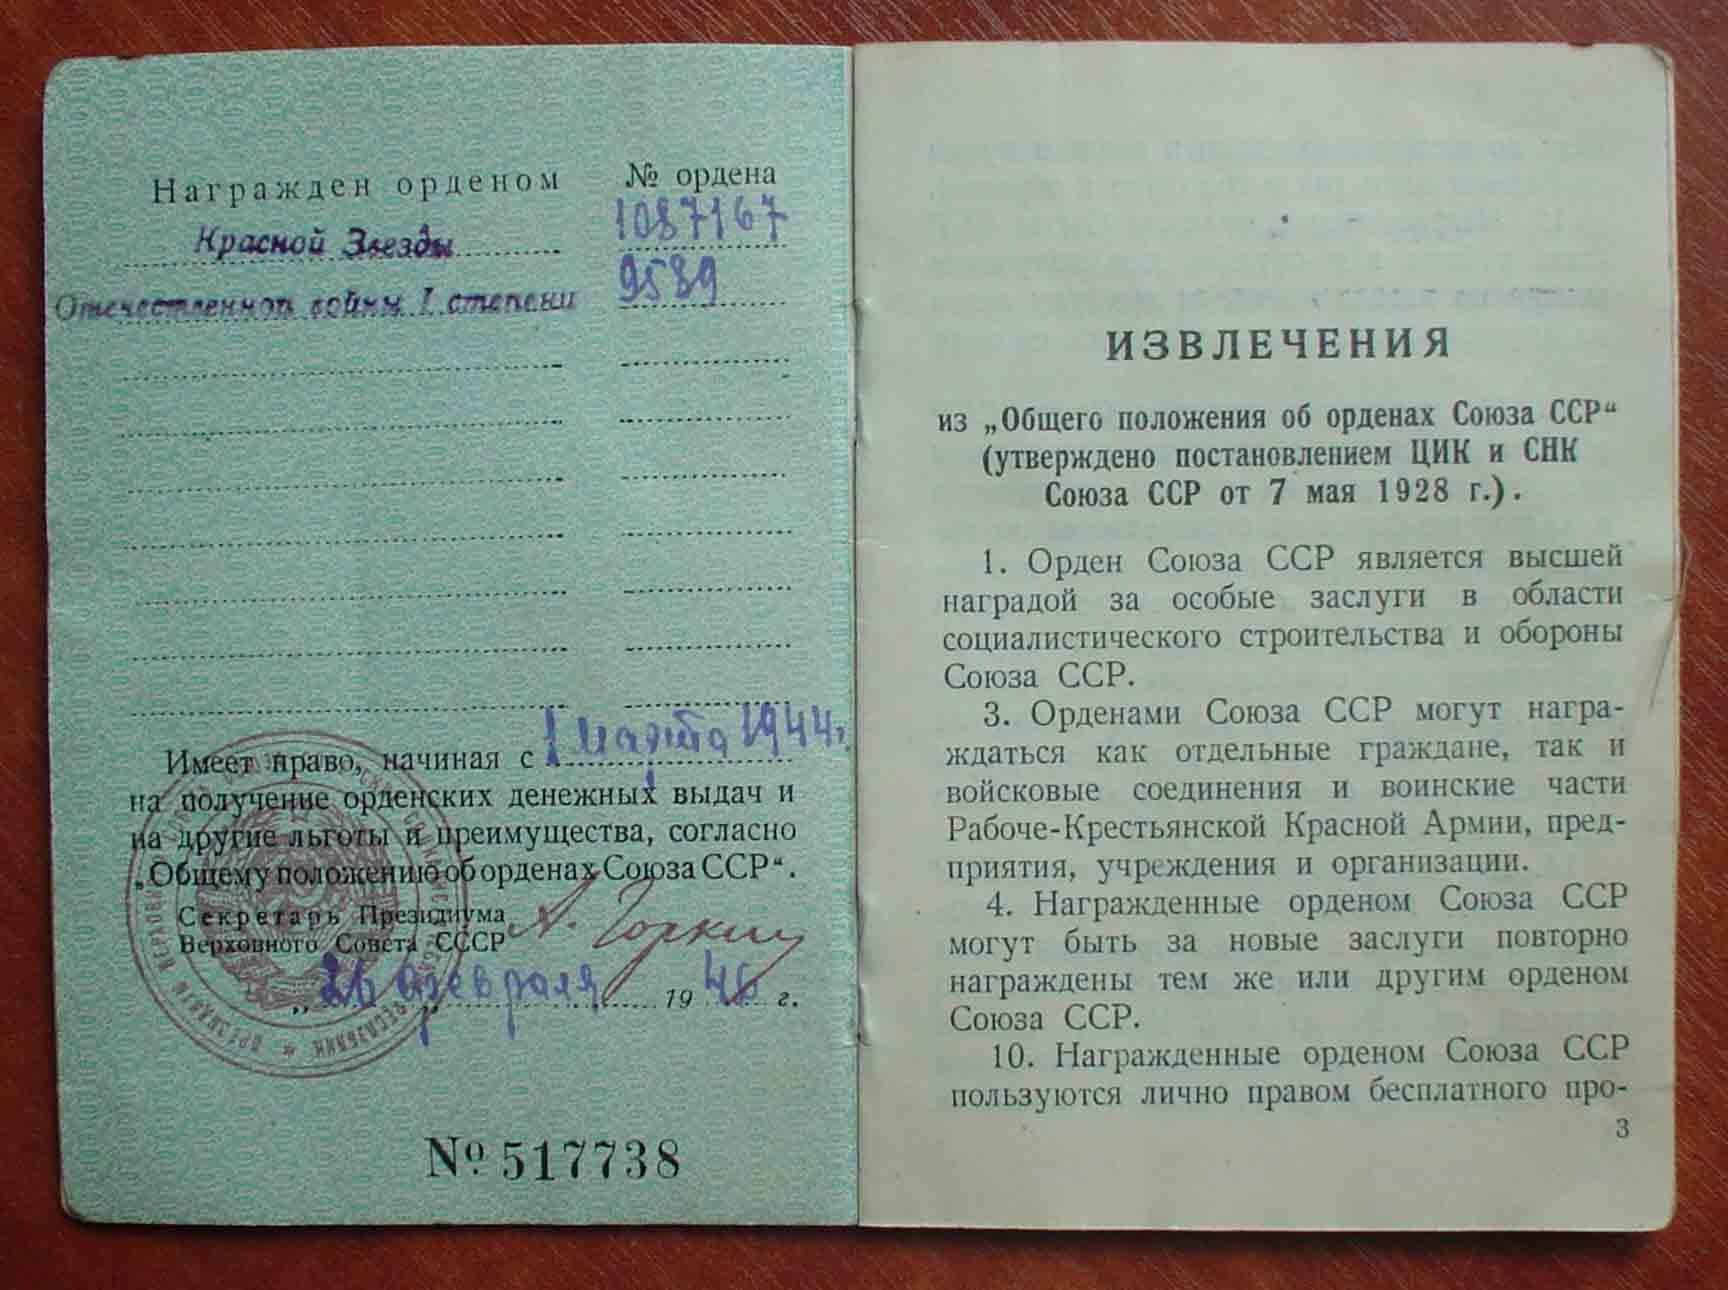 Награжден орденом № ордена
Красной Звезды 1087167
Отечественной войны I степени 9589
Имеет право, начиная с 1 марта 1944 г.
на получение орденских денежных выдач и
на другие льготы и преимущества, согласно
„Общему положению об орденах Союза ССР“.
Секретарь Президиума
Верховного Совета СССР А. Горкин
„26 февраля 1946 г.
№ 517738
ИЗВЛЕЧЕНИЯ
из „Общего положения об орденах Союза ССР“
(утверждено постановлением ЦИК и СНК
Союза ССР от 7 мая 1928 г.).
1. Орден Союза ССР является высшей
наградой за особые заслуги в области
социалистического строительства и обороны
Союза ССР.
3. Орденами Союза ССР могут награ-
ждаться как отдельные граждане, так и
войсковые соединения и воинские части
Рабоче-Крестьянской Красной Армии, пред-
приятия, учреждения и организации.
4. Награжденные орденом Союза ССР
могут быть за новые заслуги повторно
награждены тем же или другим орденом
Союза ССР.
10. Награжденные орденом Союза ССР
пользуются лично правом бесплатного про-
3